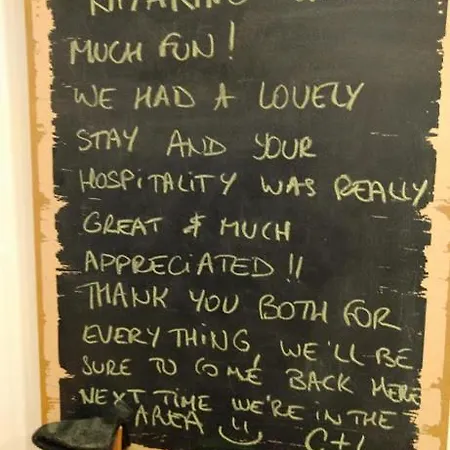 MUCH FUN!
WE HAD A LOVELY
STAY AND YOUR
HOSPITALITY WAS REALLY
GREAT & MUCH
APPRECIATED!!
THANK YOU BOTH FOR
EVERYTHING, WE'LL BE
SURE TO COME BACK HERE
NEXT TIME WE'RE IN THE
AREA!!